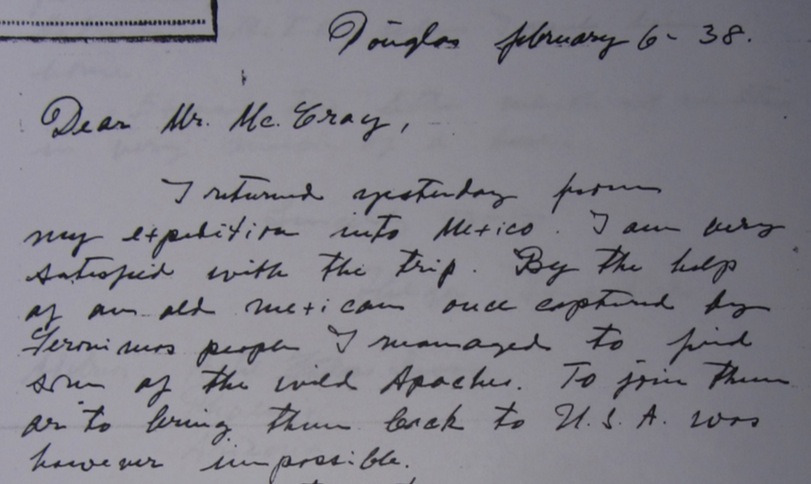 Douglas february 6 - 38.
Dear Mr. Mc. Cray,
I returned yesterday from
my expedition into Mexico. I am very
satisfied with the trip. By the help
of an old mexican once captured by
Geronimos people I managed to find
some of the wild Apaches. To join them
or to bring them back to U.S.A. was
however impossible.